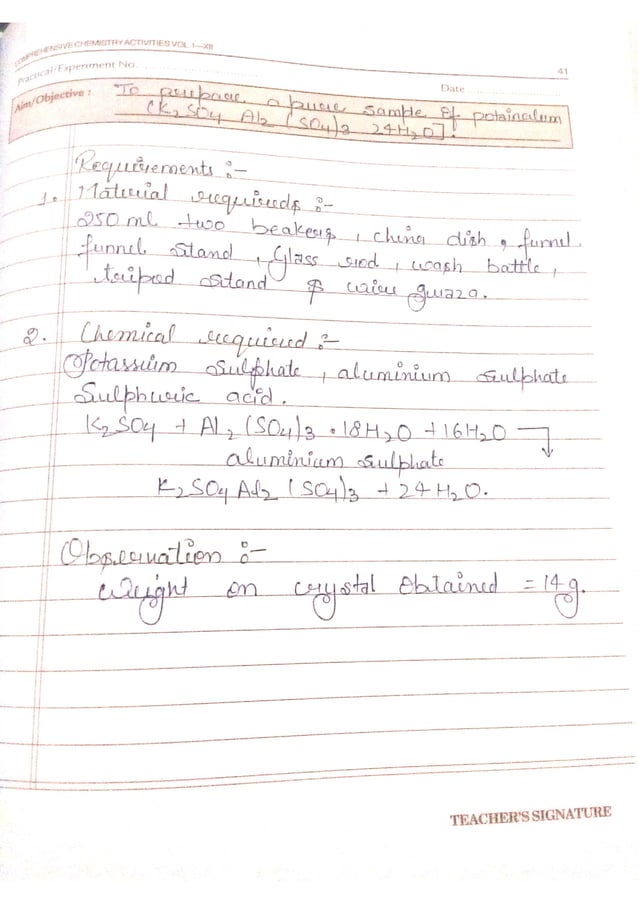 COMPREHENSIVE CHEMISTRY ACTIVITIES VOL. I—XII
41
Practical/Experiment No.
Date
Aim/Objective : To prepare a pure sample of potainalum
(K2SO4 Al2 (SO4)3 24H2O].
Requirements :-
1. Material requireds :-
250 ml two beakers, china dish, funnel
funnel stand, Glass rod, wash battle,
taipod stand & wire guaza.
2. Chemical required :-
Potassium Sulphate, aluminium sulphate
Sulphuric acid.
K2SO4 + Al2 (SO4)3 . 18H2O + 16H2O ⟶
aluminium sulphate
K2SO4 Al2 (SO4)3 + 24H2O.
Observation :-
Weight on crystal obtained = 14g.
TEACHER'S SIGNATURE